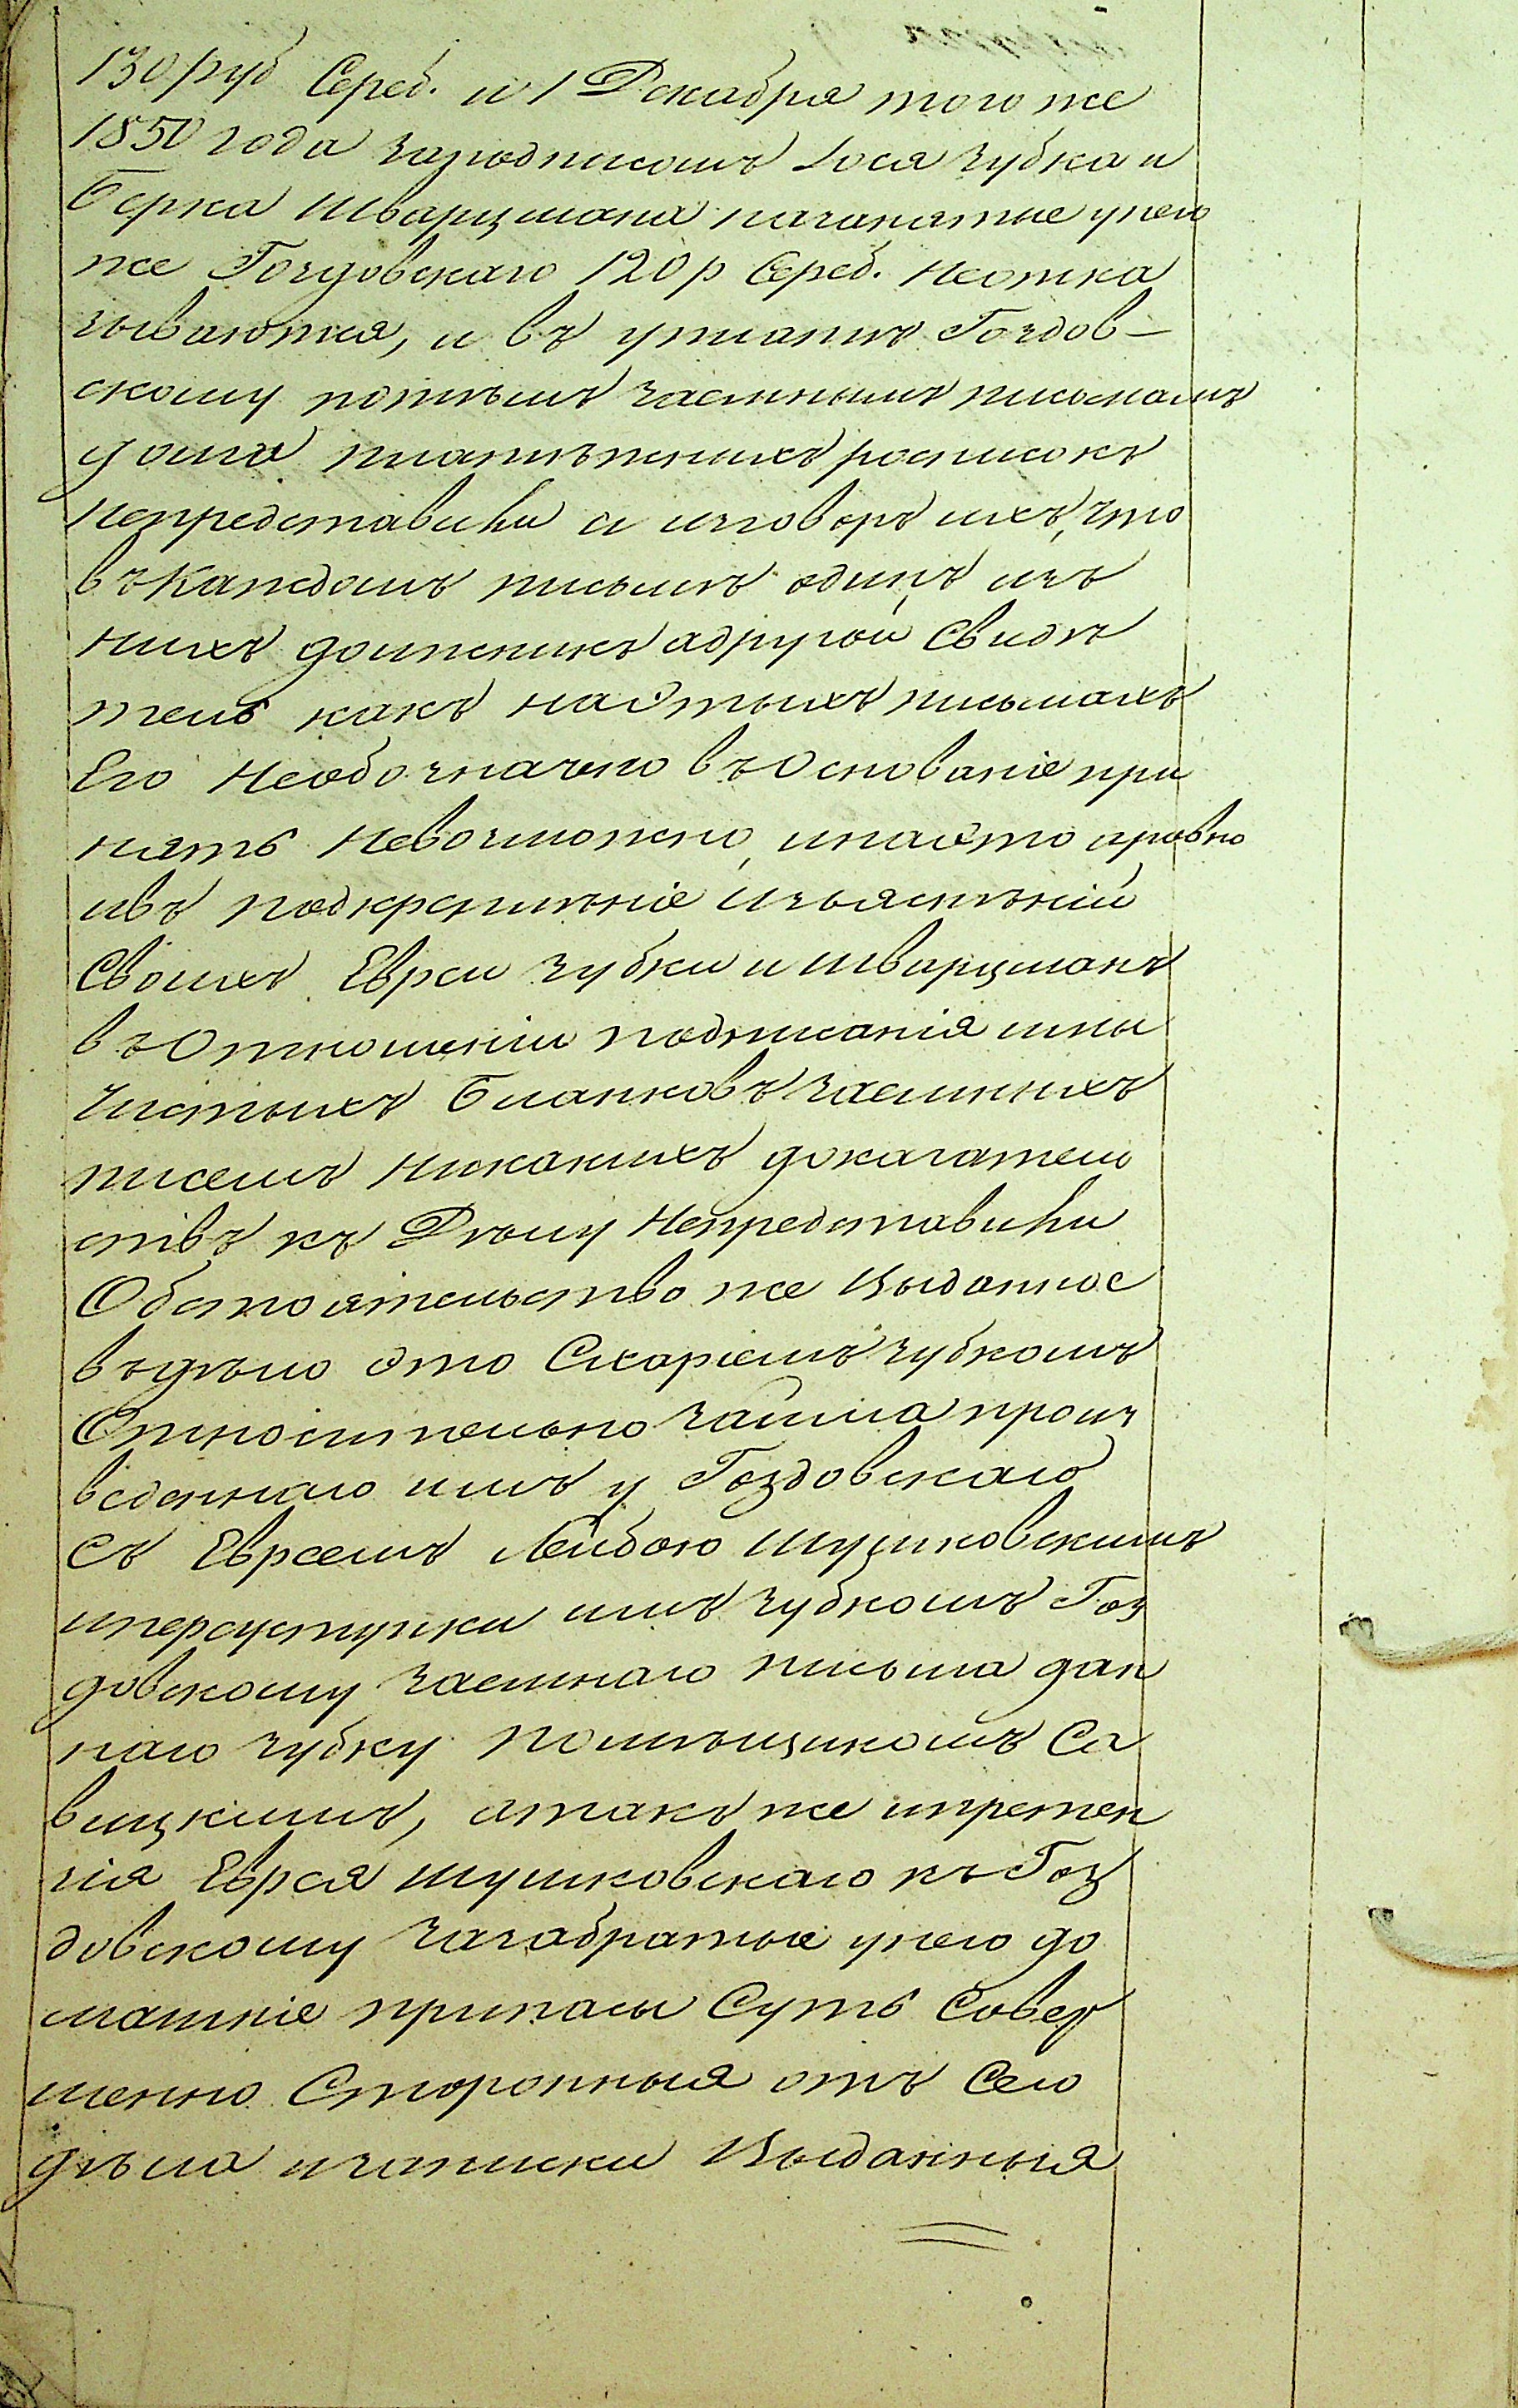 130 руб Сереб. и 1 Декабря того же
1850 года заподписомъ Іося Зубка и
Берка Шварцмана назанятые унего
же Гоздовскаго 120 р Сереб. Неотка
зываются, и въ уплатѣ Гоздов-
скому потѣмъ заемнымъ письмамъ
долга платѣжныхъ росписокъ
Непредставили а изговоръ ихъ, что
въ Каждомъ письмѣ одинъ изъ
нихъ должникъ адругой Свидѣ
тель какъ наэтыхъ письмахъ
Его Необозначено въ Основаніе при
нять Невозможно, инаэто аровно
ивъ подкрепленіе Изъяснѣній
Своихъ Евреи Зубки и Шварцманъ
въ Отношеніи подписанія ими
Чистыхъ Бланковъ заемныхъ
писемъ Никакихъ доказатель
ствъ къ Дѣлу Непредставили
Обстоятельство же Выданное
въ дѣло это Схаріемъ Зубкомъ
Относительно займа произ
веденнаго имъ у Гоздовскаго
съ Евреемъ Лейбою Шушковскимъ
ипереуступки имъ Зубкомъ Гоз
довскому заемнаго письма дан
наго Зубку помѣщикомъ Са
вицкимъ, атакъ же ипретен
зія Еврея Шушковскаго къ Гоз
довскому зазабратые унего до
машніе припасы Суть Совер
шенно Сторонныя отъ Сего
дѣла изаписки Выданныя